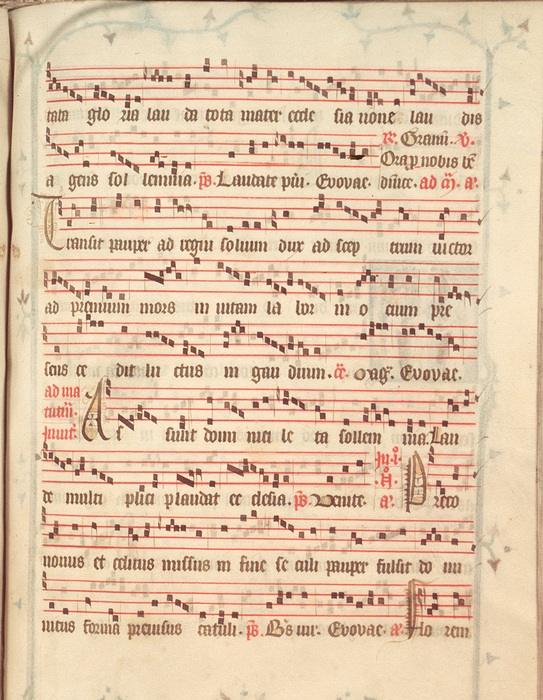 tata glo ria lau da tota mater eccle sia none lau dis
R. Gram. V.
Ora p nobis be
a gens sol lemnia. ps. Laudate pu. Evovae. dince. ad m. a.
Transit pauper ad regni solium dux ad scep trum victor
ad premium mors in vitam la bor in o cium pre
sens ce dit lu ctus in gau dium. Mag. Evovae.
ad ma
tutin.
Invit. As sunt domini ce le ta sollem nia. Lau
de multi plici plaudat ec clesia. ps. Venite. a. Preco
novus et celitus missus in fine se culi pauper fulsit do mi
nicus forma previsus catuli. ps. Bs vir. Evovae. a. Flo rem